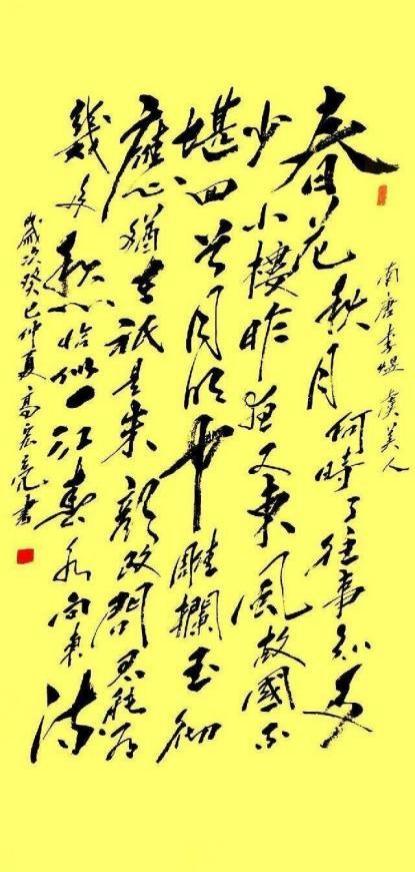 南唐李煜虞美人
春花秋月何時了往事知多
少小樓昨夜又東風故國不
堪回首月明中雕欄玉砌
應猶在祇是朱顏改問君能有
幾多愁恰似一江春水向東流
歲次癸巳仲夏高宏亮書